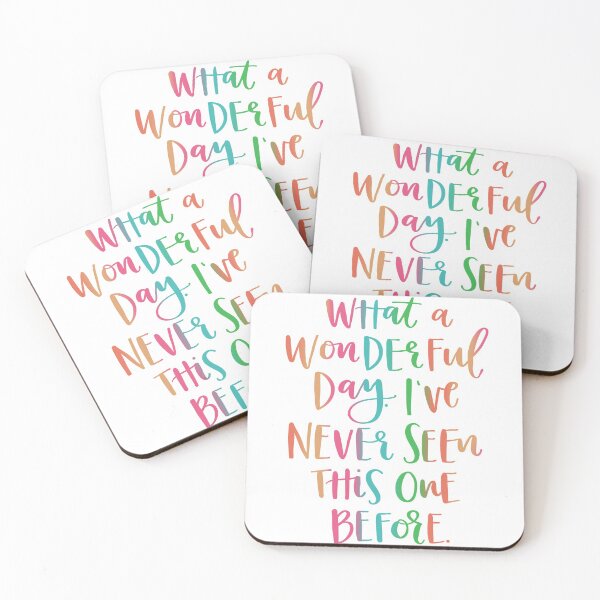 WHat a
WonDERFul
Day. I've
WHat a
WonDERFul
Day. I've
NEVER SEEn
WHat a
WonDERFul
Day. I've
NEVER SEEn
THiS On
BEF
WHat a
WonDERFul
Day. I've
NEVER SEEn
THiS OnE
BEFORE.